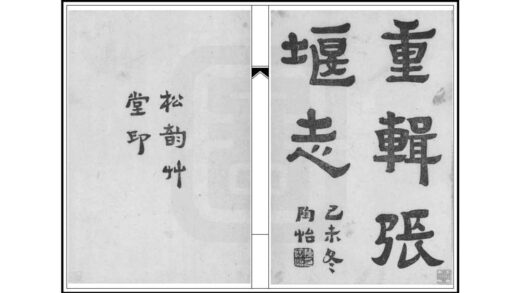 重輯張
堰志
乙未冬
陶怡
松韵艸
堂印